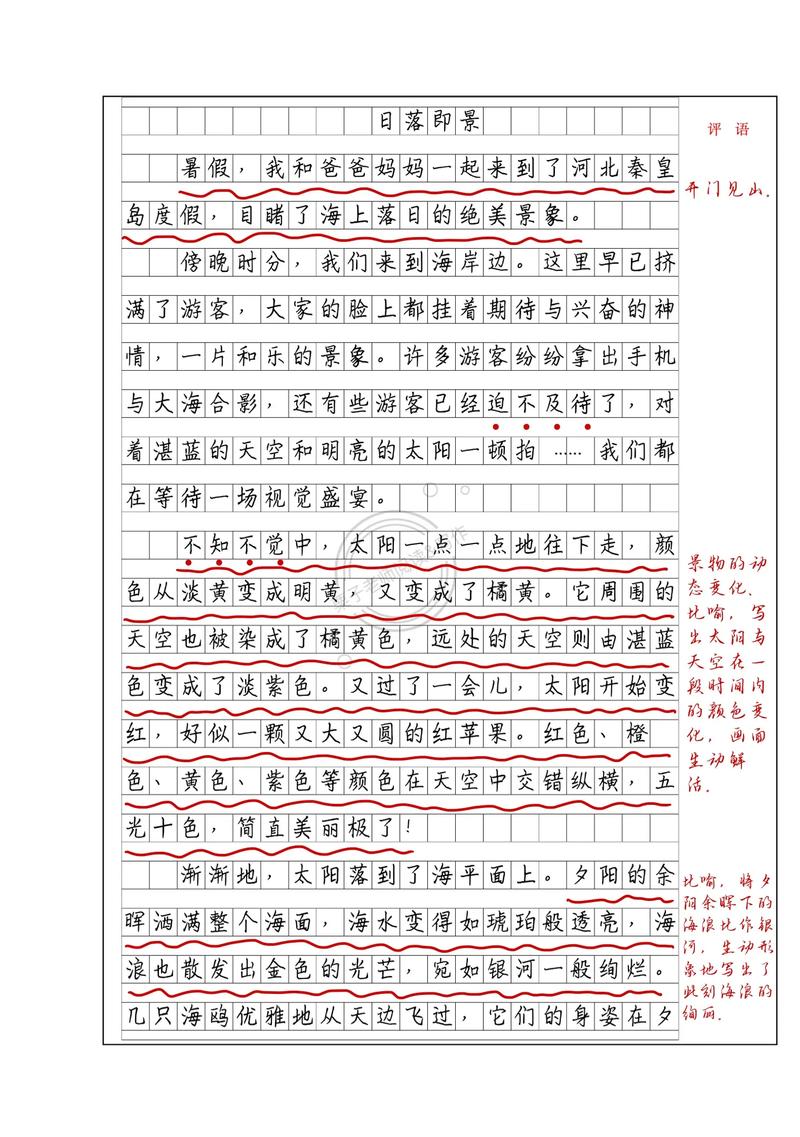 日落即景
评 语
暑假，我和爸爸妈妈一起来到了河北秦皇
开门见山.
岛度假，目睹了海上落日的绝美景象。
傍晚时分，我们来到海岸边。这里早已挤
满了游客，大家的脸上都挂着期待与兴奋的神
情，一片和乐的景象。许多游客纷纷拿出手机
与大海合影，还有些游客已经迫不及待了，对
着湛蓝的天空和明亮的太阳一顿拍……我们都
在等待一场视觉盛宴。
不知不觉中，太阳一点一点地往下走，颜
色从淡黄变成明黄，又变成了橘黄。它周围的
天空也被染成了橘黄色，远处的天空则由湛蓝
色变成了淡紫色。又过了一会儿，太阳开始变
红，好似一颗又大又圆的红苹果。红色、橙
色、黄色、紫色等颜色在天空中交错纵横，五
光十色，简直美丽极了！
景物的动
态变化.
比喻，写
出太阳与
天空在一
段时间内
的颜色变
化，画面
生动鲜
活.
渐渐地，太阳落到了海平面上。夕阳的余
晖洒满整个海面，海水变得如琥珀般透亮，海
浪也散发出金色的光芒，宛如银河一般绚烂。
几只海鸥优雅地从天边飞过，它们的身姿在夕
比喻，将夕
阳余晖下的
海浪比作银
河，生动形
象地写出了
此刻海浪的
绚丽.